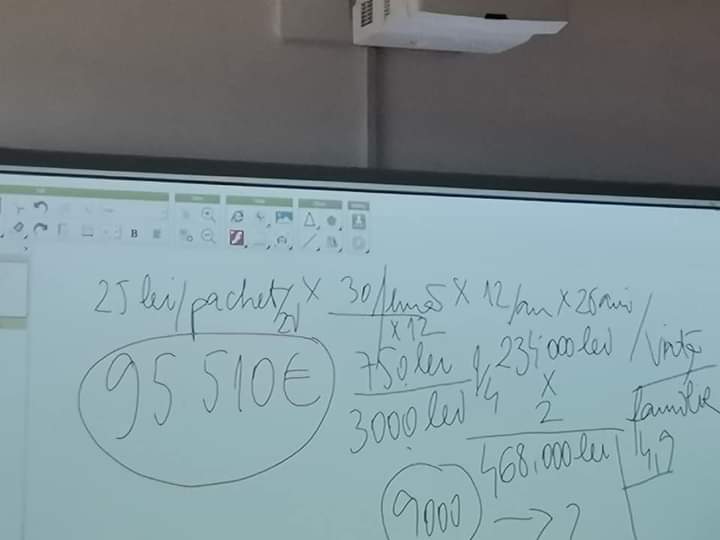 25 lei/pachet/zi x 30/lună x 12/an x 26 ani
x 12
95 510 €
750 lei
234.000 lei / viață
3000 lei
4
x
2
familie
468.000 lei
4,9
9000 → ?
B